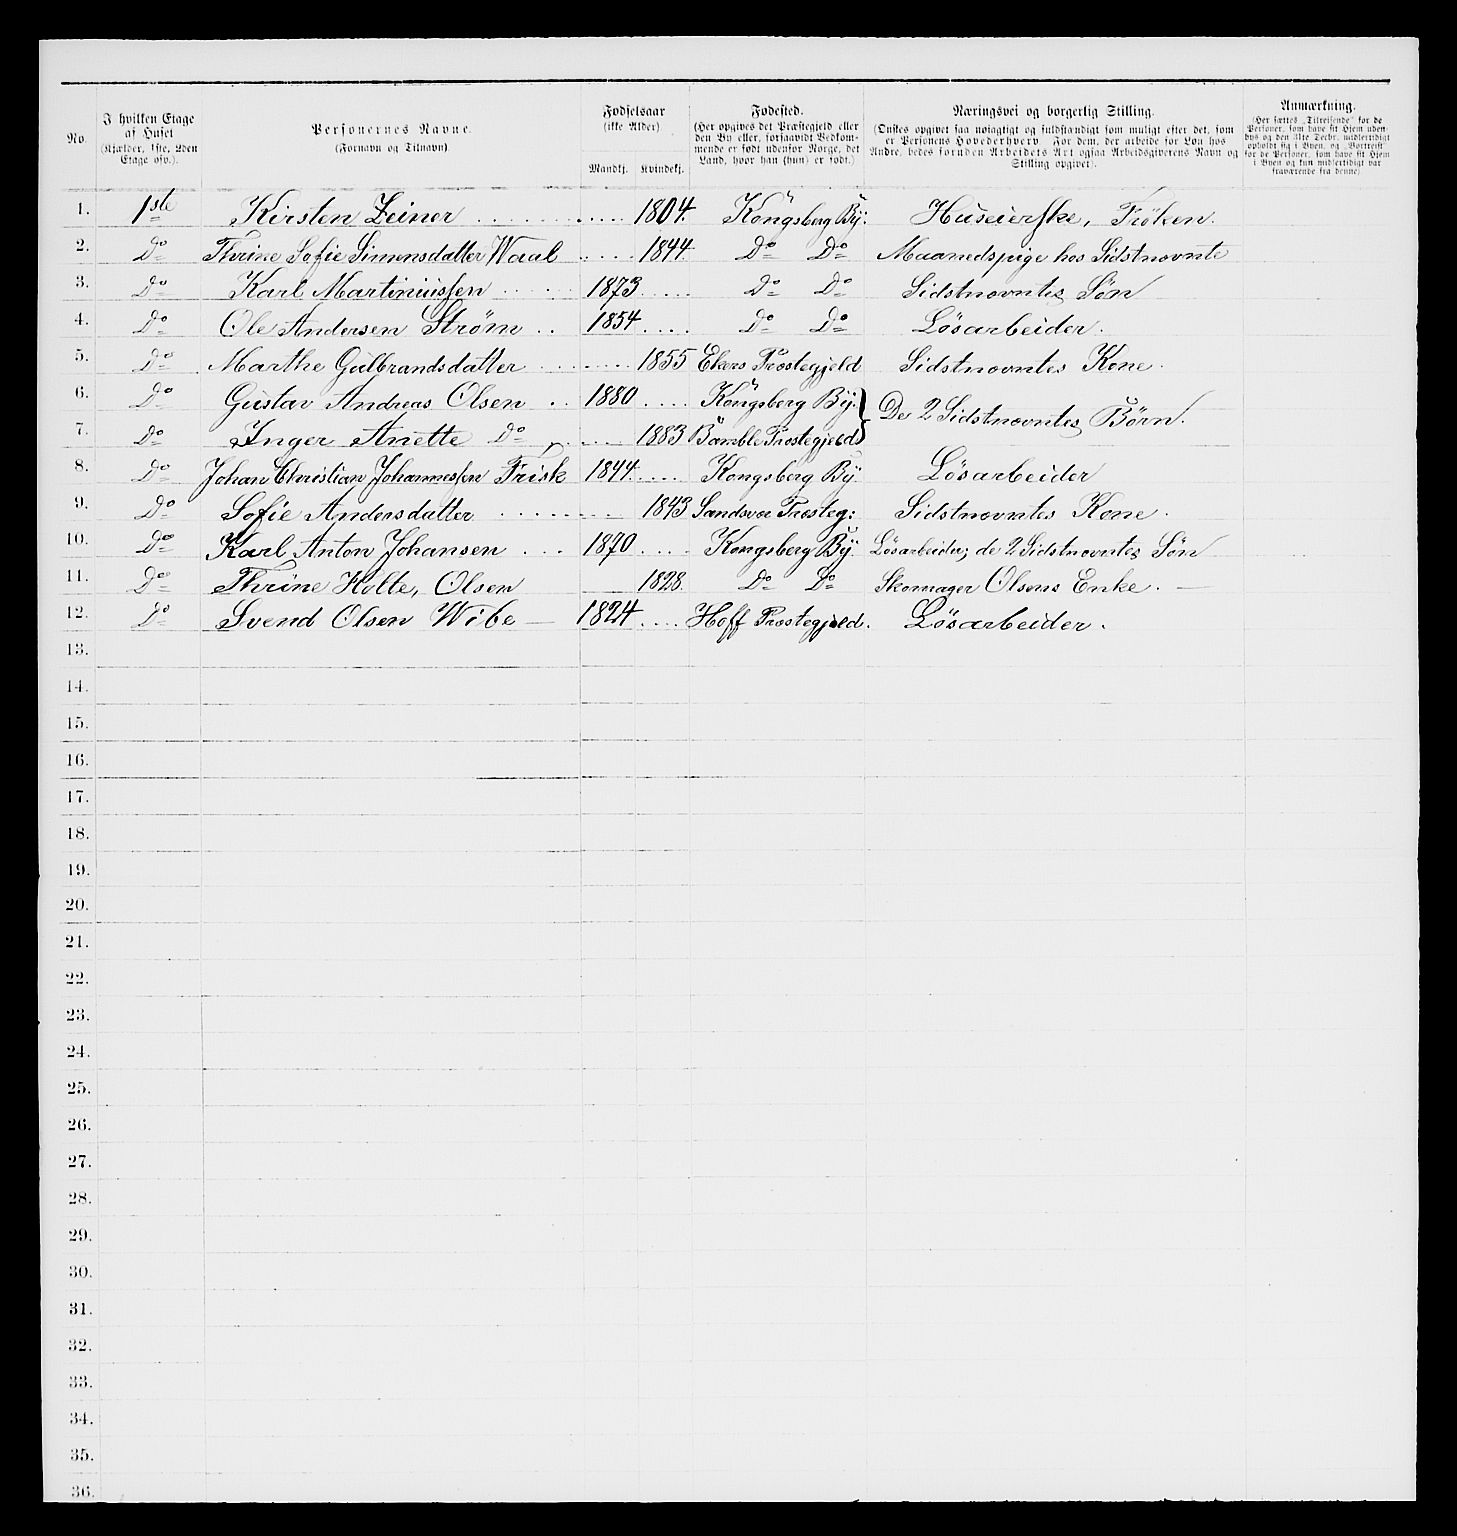 No. | I hvilken Etage af Huset (Kjælder, 1ste, 2den Etage osv.). | Personernes Navne. (Fornavn og Tilnavn). | Fødselsaar (ikke Alder) Mandkj. | Kvindekj. | Fødested. (Her opgives det Præstegjeld eller den By eller, forsaavidt Vedkommende er født udenfor Norge, det Land, hvor han (hun) er født.) | Næringsvei og borgerlig Stilling. (Ønskes opgivet saa nøiagtigt og fuldstændigt som muligt efter det, som er Personens Hovederhverv. For dem, der arbeide for Løn hos Andre, bedes foruden Arbeidets Art ogsaa Arbeidsgiverens Navn og Stilling opgivet). | Anmærkning. (Her sættes „Tilreisende" for de Personer, som have sit Hjem udenbys og den 31te Decbr. midlertidigt opholdt sig i Byen, og „Bortreist" for de Personer, som have sit Hjem i Byen og kun midlertidigt var fraværende fra denne)
1. 1ste Kirsten Zeiner ........ 1804. Kongsberg By: Huseierske, Frøken.
2. Do Thrine Sofie Simensdatter Waal .... 1844 Do Do Maanedspige hos Sidstnævnte
3. Do Karl Martiniussen ..... 1873 ..... Do Do Sidstnævntes Søn
4. Do Ole Andersen Strøm .. 1854 .... Do Do Løsarbeider.
5. Do Marthe Gulbrandsdatter ....... 1855 Ekers Præstegjeld Sidstnævntes Kone.
6. Do Gustav Andreas Olsen .. 1880 .... Kongsberg By. } De 2 Sidstnævntes Børn.
7. Do Inger Anette Do ...... 1883 Bamble Præstegjeld }
8. Do Johan Christian Johannessen Frisk 1844. .... Kongsberg By. Løsarbeider
9. Do Sofie Andersdatter ......... 1843 Sandsvær Præsteg: Sidstnævntes Kone.
10. Do Karl Anton Johansen ... 1870 .... Kongsberg By. Løsarbeider; de 2 Sidstnævntes Søn
11. Do Thrine Holte, Olsen 1828. Do Do Skomager Olsens Enke. —
12. Do Svend Olsen Wibe — 1824 .... Hoff Præstegjeld. Løsarbeider.
13.
14.
15.
16.
17.
18.
19.
20.
21.
22.
23.
24.
25.
26.
27.
28.
29.
30.
31.
32.
33.
34.
35.
36.